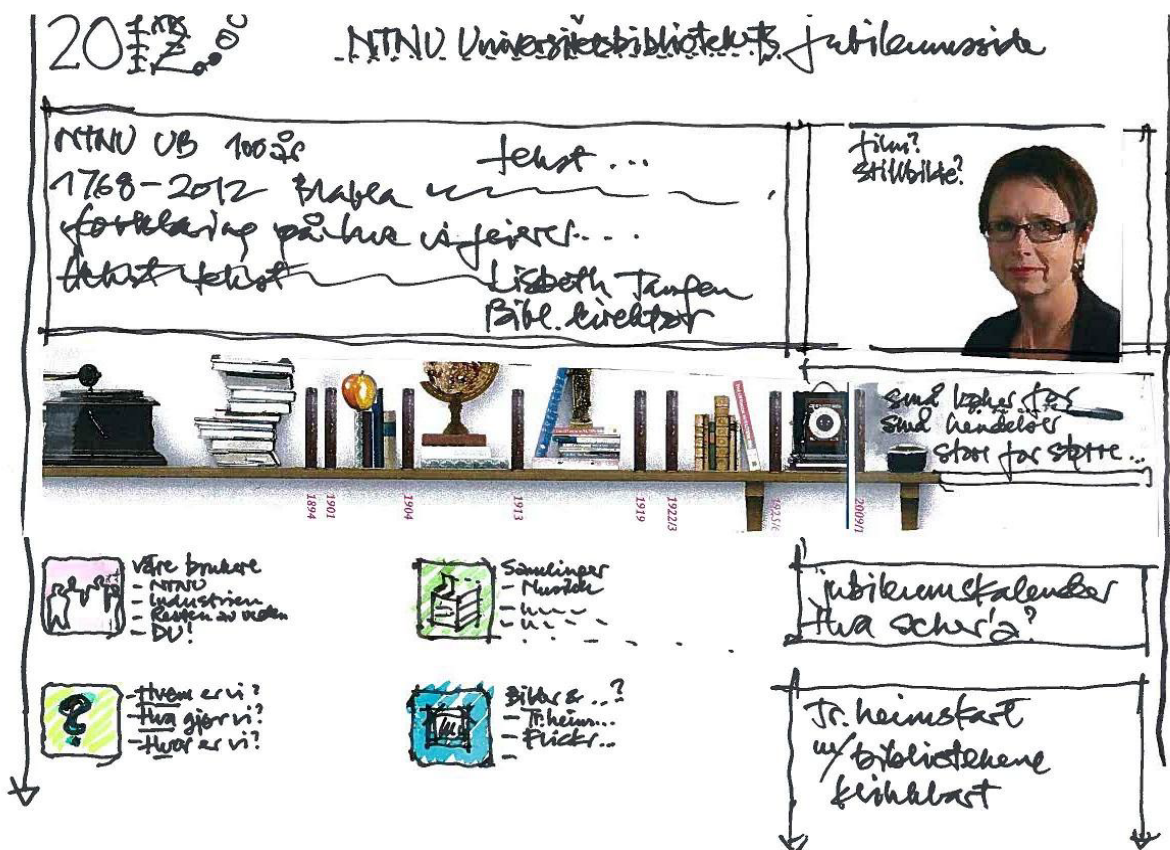 2012
NTNU Universitetsbibliotekets jubileumsside
NTNU UB 100 år
tekst ...
1768-2012 Blabla
forklaring på hva vi feirer....
tekst tekst
Lisbeth Tangen
Bibl. direktør
film?
stillbilde?
små bøker for
små hendelser
store for større...
1894
1901
1904
1913
1919
1922/3
2009/1
Våre brukere
- NTNU
- Industrien
- Resten av verden
- DU!
Samlinger
- Musikk
jubileumskalender
Hva scher'a?
- Hvem er vi?
- Hva gjør vi?
- Hvor er vi?
Bilder & ..?
- Tr.heim...
- Flickr...
Tr.heimskart
m/bibliotekene
klikkbart